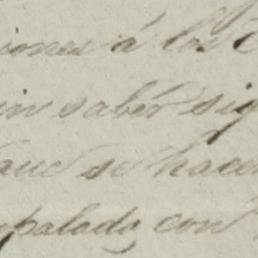 iones á los
in saber sig
que se hacen
palado con